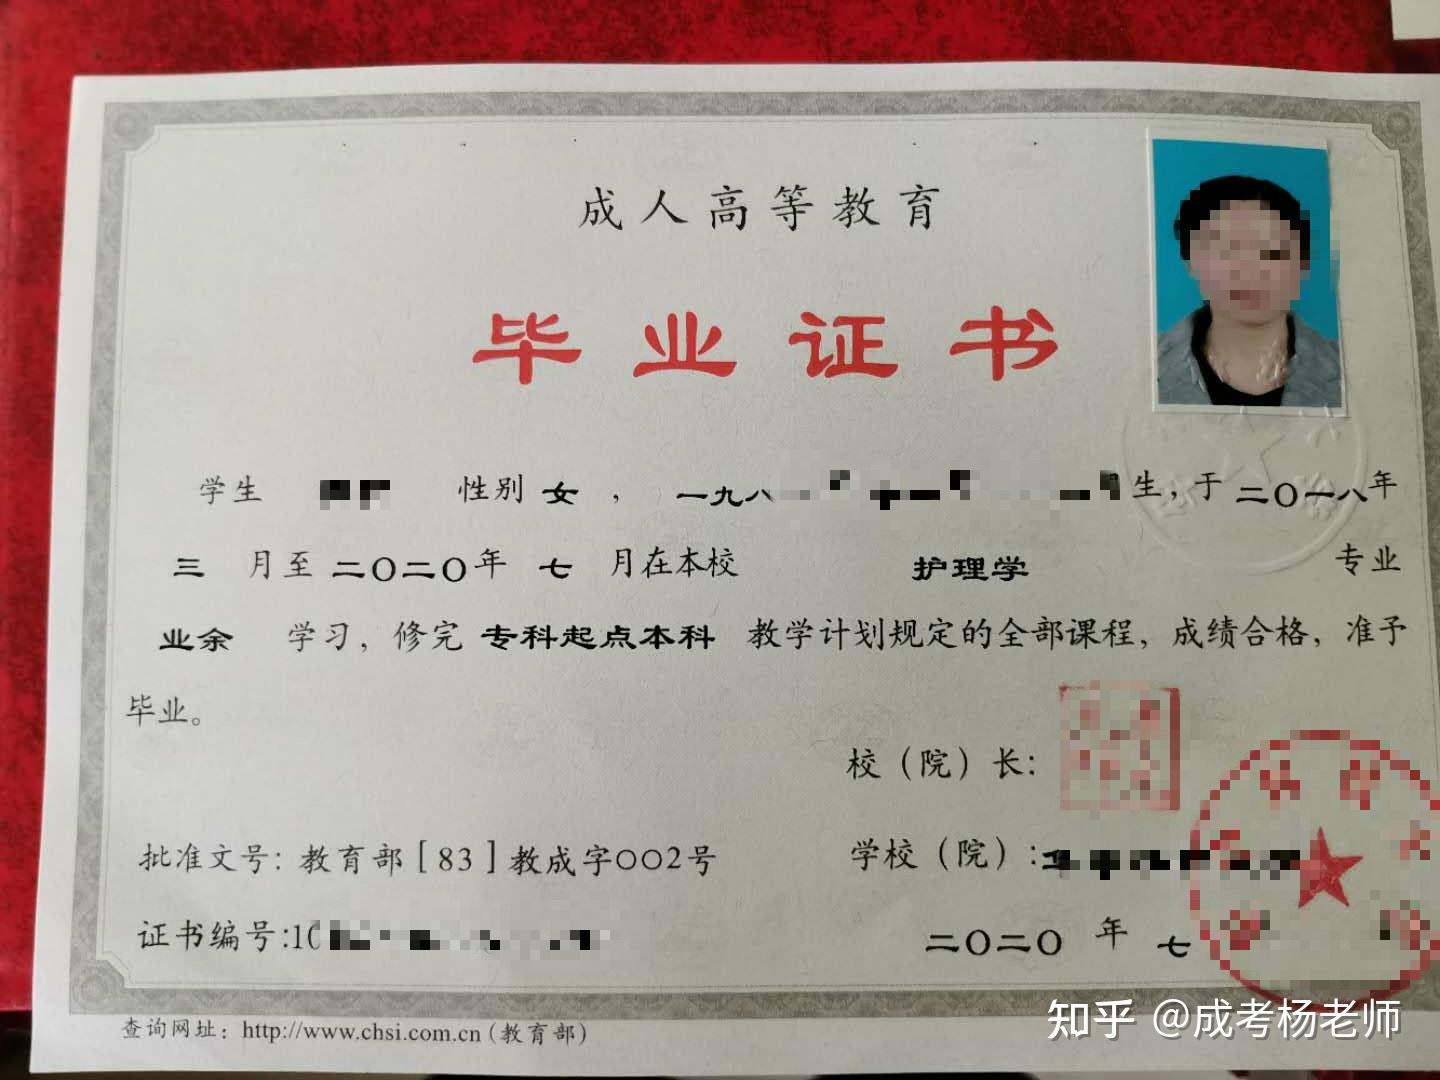 成人高等教育
毕业证书
学生 性别 女 ， 一九八 生，于 二〇一八 年
三 月至 二〇二〇 年 七 月在本校 护理学 专业
业余 学习，修完 专科起点本科 教学计划规定的全部课程，成绩合格，准予
毕业。
校（院）长：
批准文号：教育部［83］教成字〇〇2号
学校（院）：
证书编号:10
二〇二〇 年 七
查询网址：http://www.chsi.com.cn(教育部)
知乎 @成考杨老师